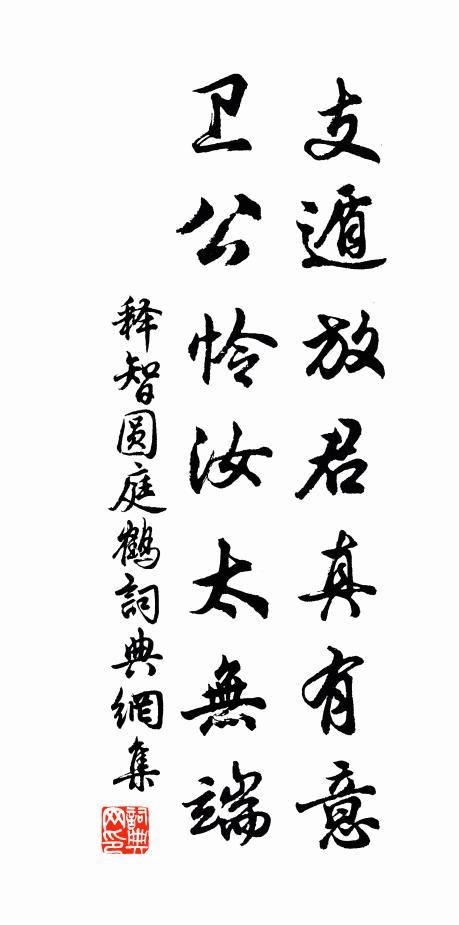 支遁放君真有意
卫公怜汝太無端
释智圆庭鶴詞典網集
詞典网印